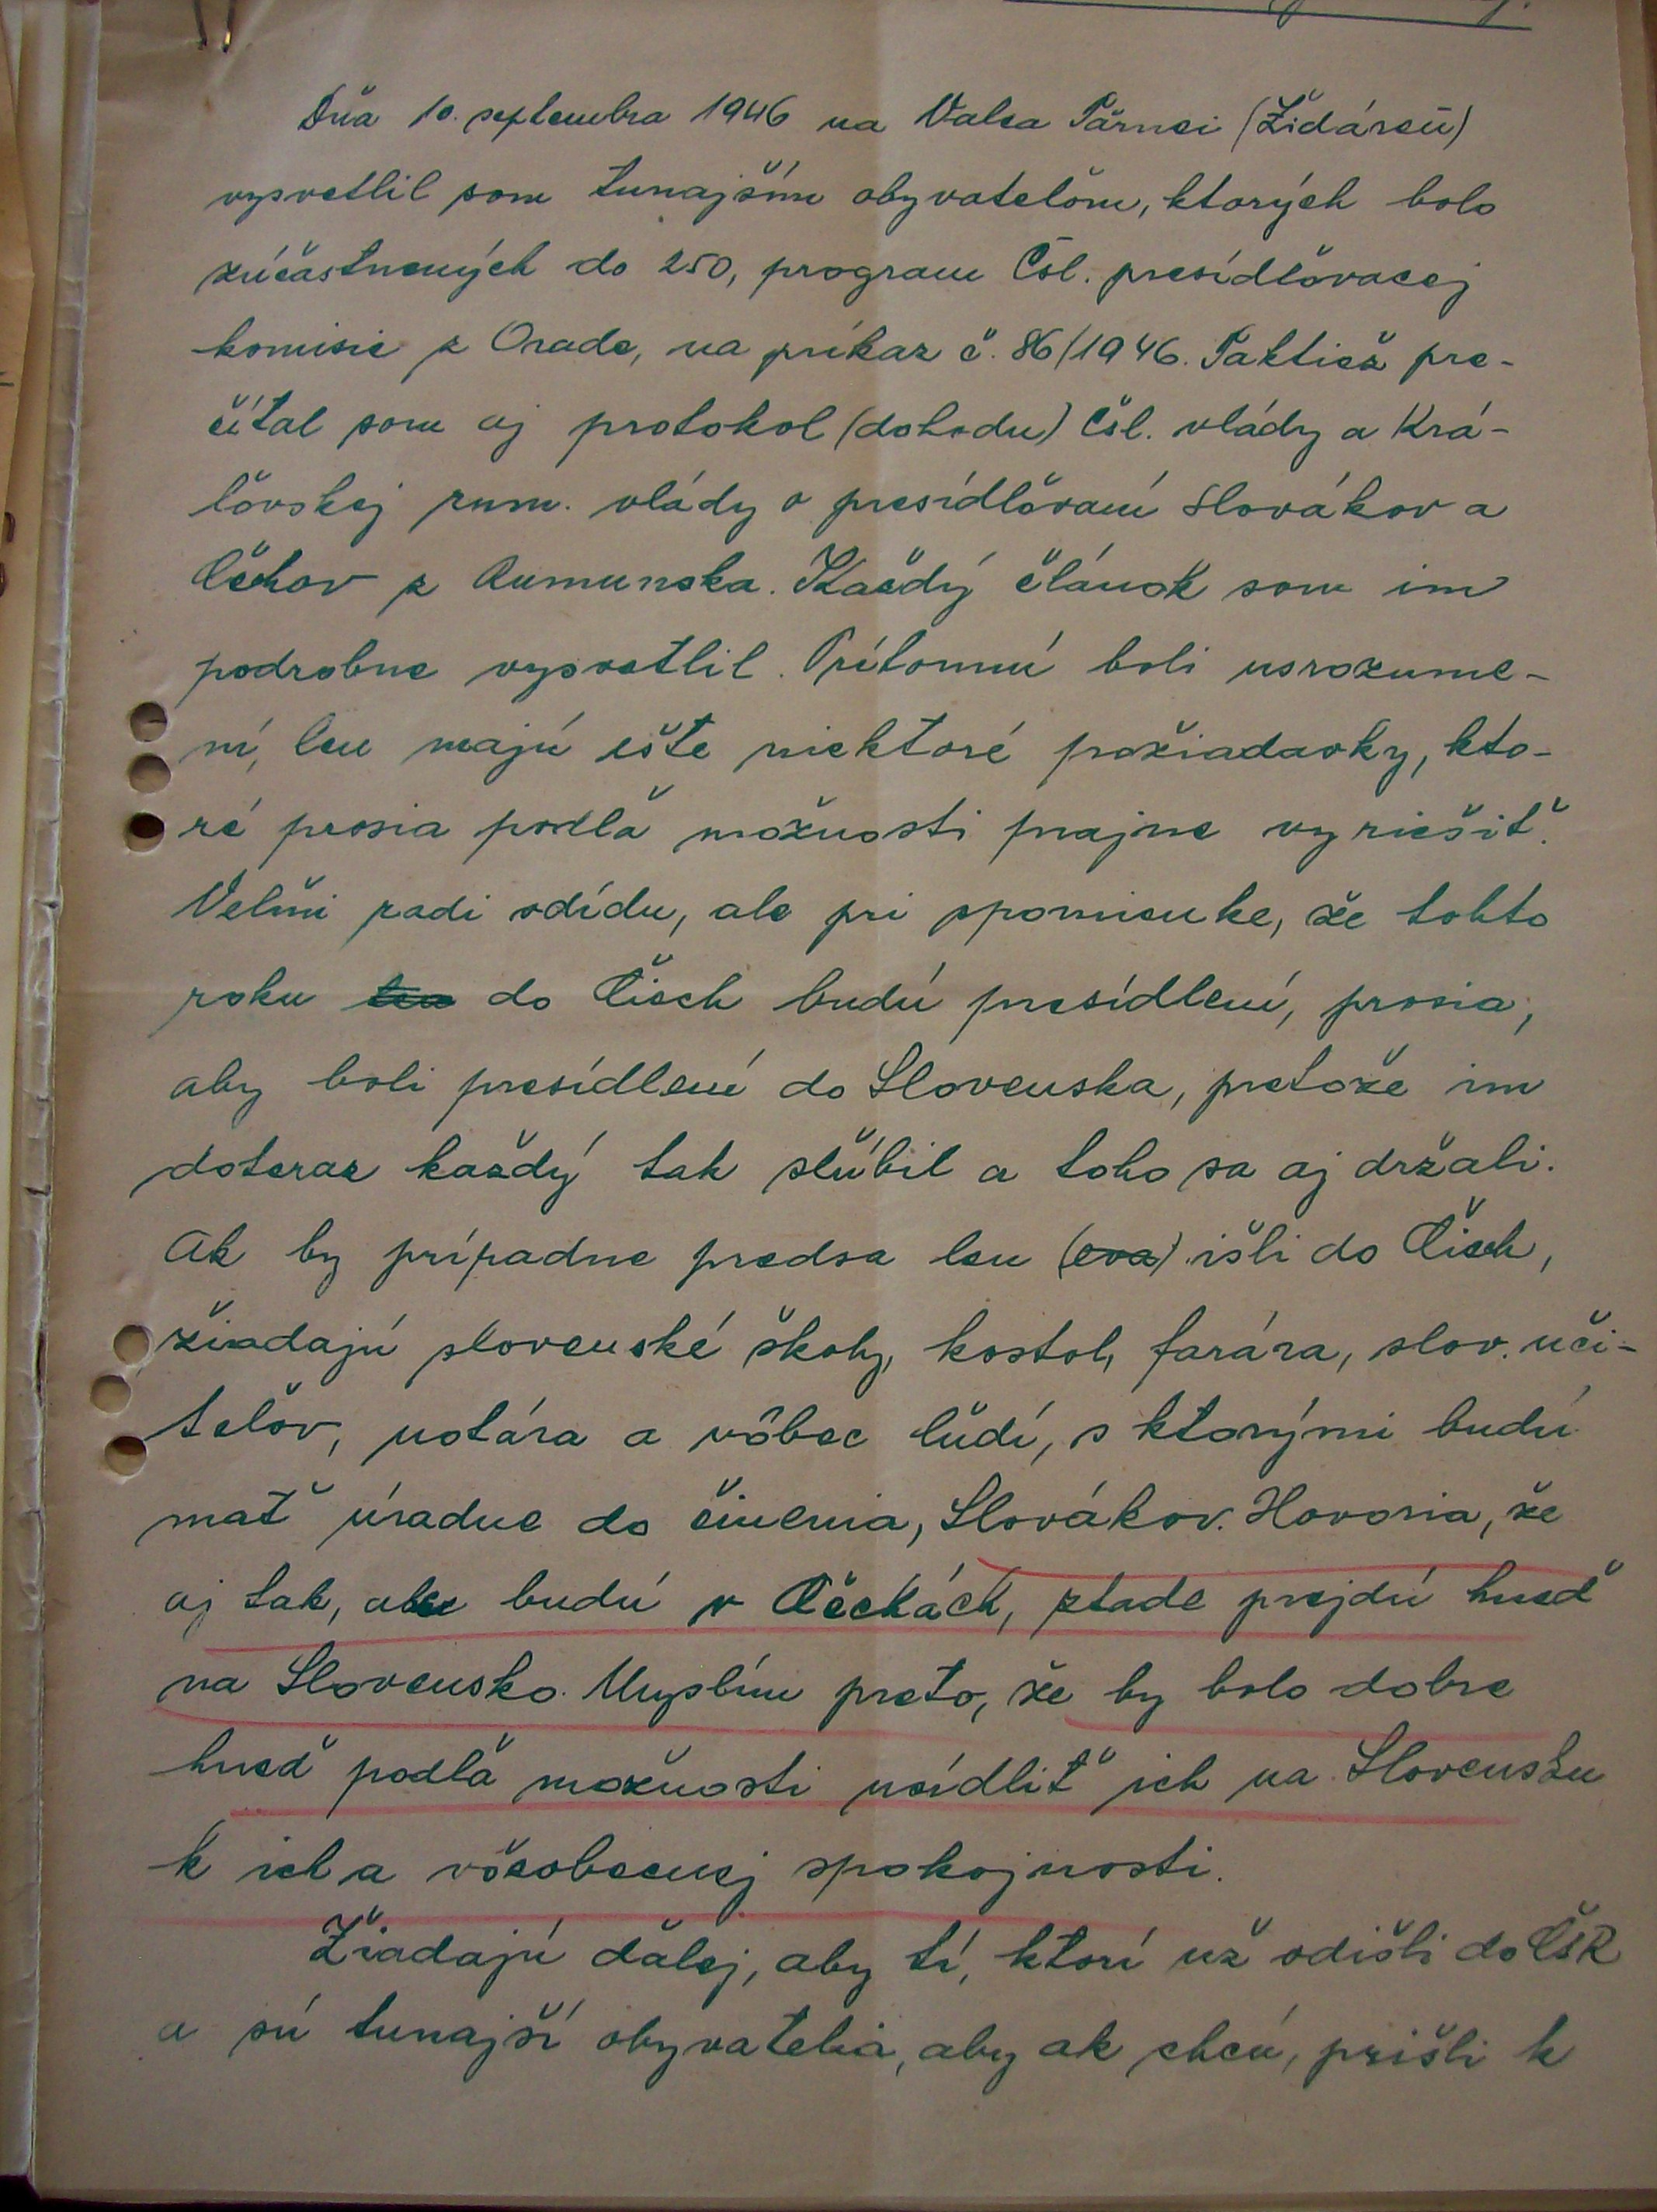 Dňa 10. septembra 1946 na Valea Târnei (Židáreň)
vysvetlil som tunajším obyvateľom, ktorých bolo
zúčastnených do 250, program Čsl. presídľovacej
komisie z Orade, na príkaz č. 86/1946. Taktiež pre-
čítal som aj protokol (dohodu) Čsl. vlády a Krá-
ľovskej rum. vlády o presídľovaní Slovákov a
Čechov z Rumunska. Každý článok som im
podrobne vysvetlil. Prítomní boli uzrozume-
ní, len majú ešte niektoré požiadavky, kto-
ré prosia podľa možnosti prajne vyriešiť.
Veľmi radi odídu, ale pri spomienke, že tohto
roku len do Čiech budú presídlení, prosia,
aby boli presídlení do Slovenska, pretože im
doteraz každý tak sľúbil a toho sa aj držali.
Ak by prípadne predsa len (cva) išli do Čiech,
žiadajú slovenské školy, kostol, farára, slov. uči-
teľov, notára a vôbec ľudí, s ktorými budú
mať úradne do činenia, Slovákov. Hovoria, že
aj tak, ak budú v Čechách, ztade prejdú hneď
na Slovensko. Myslím preto, že by bolo dobre
hneď podľa možnosti usídliť ich na Slovensku
k ich a všeobecnej spokojnosti.
Žiadajú ďalej, aby tí, ktorí už odišli do ČSR
a sú tunajší obyvatelia, aby ak chcú, prišli k